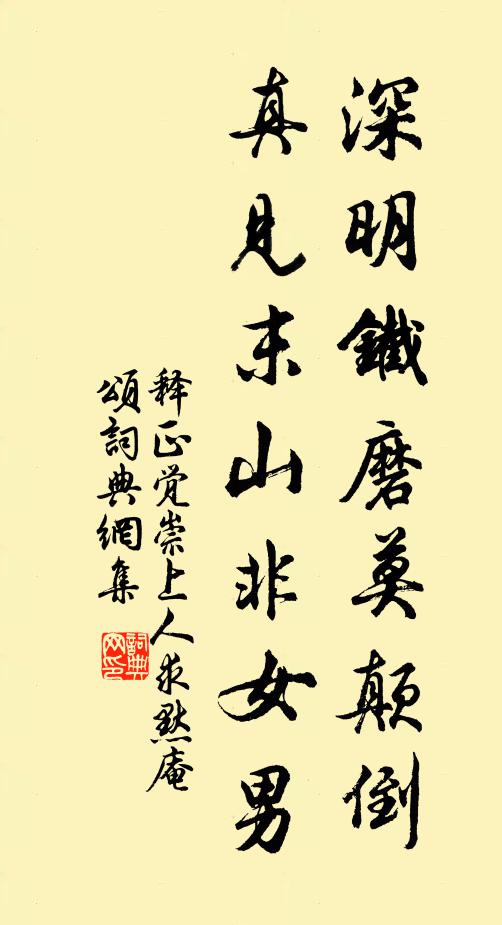 深明鐵磨莫颠倒
真見末山非女男
释正觉崇上人求默庵
頌詞典網集
詞典网印